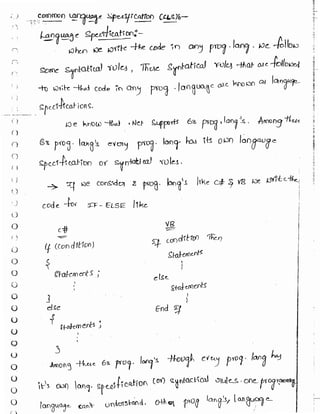 common Language Specification (CLS):-
Language Specification:-
When we write the code in any prog. lang. we follow
Some Syntatical rules, Those Syntatical rules that are followed
to write that code in any prog. language are known as language
Specifications.
We know that .Net Supports 62 prog. lang's. Among these
62 prog. lang's every prog. lang. has its own language
Specification or syntatical rules.
→ If we consider 2 prog. lang's like c# & VB we write the
code for IF - ELSE like
c# VB
if (condition) If condition Then
{ Statements
Statements ;
} else
else Statements
{ End If
Statements ;
}
Among these 62 prog. lang's though every prog. lang has
it's own lang. specification (or) syntactical rules. one programming
language can't understand other prog lang's language